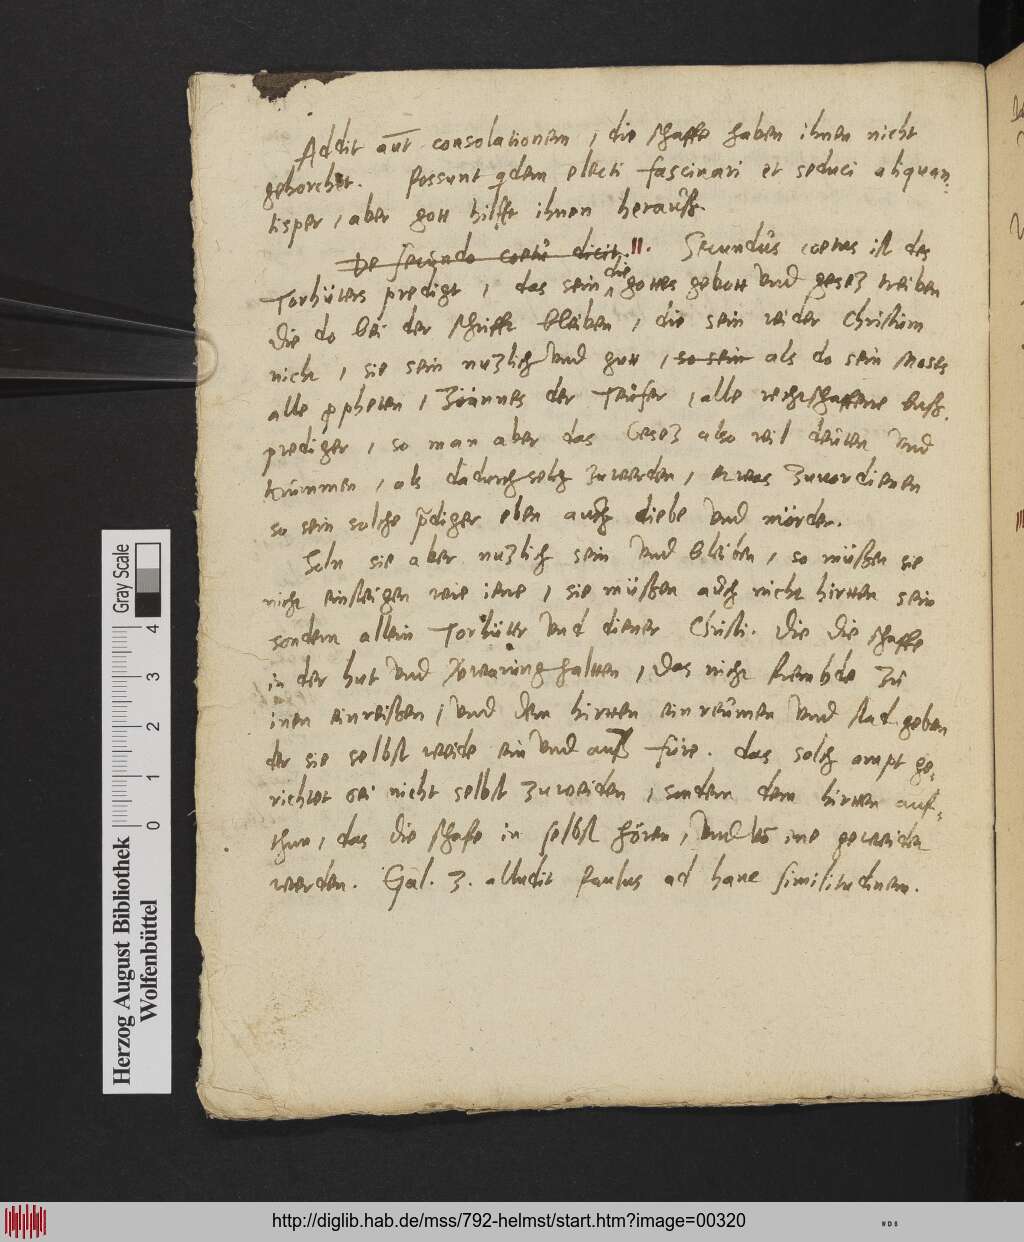 Addit aut̄ consolationem, die schaffe haben ihnen nicht
gehorchet. Possunt qdem electi fascinari et seduci aliquan-
tisper, aber gott hilfft ihnen herauß
De secundo coetu dicit. II. Secundus coetus ist des
Torhüters predigt, das sein die gottes gebott und gesetz treiben
die do bei der schrifft bleiben, die sein wider Christum
nicht, sie sein nuzlich und gutt, so sein als do sein Moses
alle ppheten, Joannes der Teufer, alle rechtschaffene buß-
prediger, so man aber das Gesez also wil deuten und
krummen, als dadurch selig zuwerden, etwas zuvordienen
so sein solche p̄diger eben auch diebe und mörder.
Soln sie aber nuzlich sein und bleiben, so müßen sie
nicht einsteigen wie iene, sie müßen auch nicht hirtten sein
sondern allein Torhütter und diener Christi. Die die schaffe
in der hut und verwarung haltten, das nicht frembde zu
inen einreißen, und dem hirtten einreumen und stad geben
der sie selbst weide ein und auß füre. das solch ampt ge-
richtet sei nicht selbst zuweiden, sondern dem hirtten auf-
thun, das die schafe in selbst hören, und von ime geweidet
werden. Gal. 3. alludit Paulus ad hanc similitudinem.
Herzog August Bibliothek
Wolfenbüttel
Gray Scale
0 1 2 3 4
http://diglib.hab.de/mss/792-helmst/start.htm?image=00320